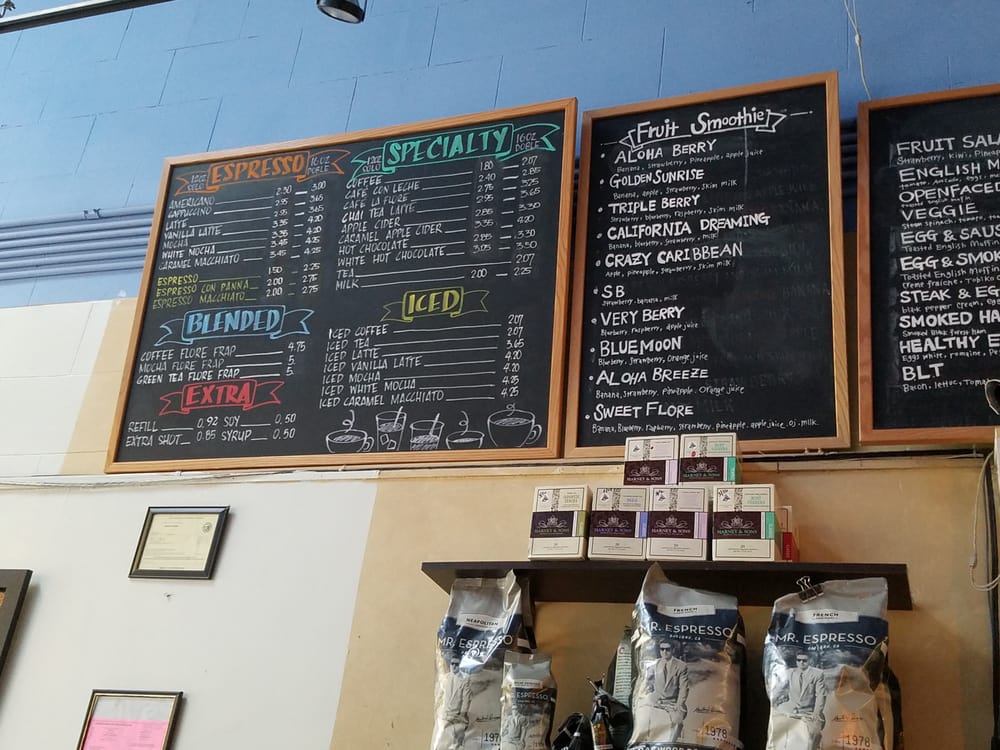 12OZ SOLO ESPRESSO 16OZ DOBLE
AMERICANO 2.30 3.00
CAPPUCCINO 2.95 3.65
LATTE 2.95 3.65
VANILLA LATTE 3.35 4.20
MOCHA 3.35
WHITE MOCHA 3.45 4.25
CARAMEL MACCHIATO 3.45 4.25
ESPRESSO 1.50 2.25
ESPRESSO CON PANNA 2.00 2.75
ESPRESSO MACCHIATO 2.00 2.75
BLENDED
COFFEE FLORE FRAP 4.75
MOCHA FLORE FRAP 5.
GREEN TEA FLORE FRAP 5.
EXTRA
REFILL 0.92 SOY 0.50
EXTRA SHOT 0.85 SYRUP 0.50
12OZ SOLO SPECIALTY 16OZ DOBLE
COFFEE 1.80 2.07
CAFE CON LECHE 2.40 2.85
CAFE LA FLORE 2.75 3.25
CHAI TEA LATTE 2.95 3.65
APPLE CIDER 2.85
CARAMEL APPLE CIDER 3.55 4.20
HOT CHOCOLATE 2.85 3.30
WHITE HOT CHOCOLATE 3.05 3.50
TEA 2.07
MILK 2.00 2.25
ICED
ICED COFFEE 2.07
ICED TEA 2.07
ICED LATTE 3.65
ICED VANILLA LATTE 4.20
ICED MOCHA 4.20
ICED WHITE MOCHA 4.25
ICED CARAMEL MACCHIATO 4.25
Fruit Smoothie
ALOHA BERRY
Banana, Strawberry, Pineapple, apple juice
GOLDEN SUNRISE
Banana, apple, Strawberry, Skim milk
TRIPLE BERRY
Strawberry, blueberry, raspberry, skim milk
CALIFORNIA DREAMING
Banana, blueberry, strawberry, milk
CRAZY CARIBBEAN
Apple, pineapple, strawberry, Skim milk
SB
Strawberry, banana, milk
VERY BERRY
Blueberry, raspberry, apple juice
BLUE MOON
Blueberry, Strawberry, Orange juice
ALOHA BREEZE
Banana, Strawberry, Pineapple, Orange juice
SWEET FLORE
Banana, Blueberry, raspberry, strawberry, pineapple, apple juice, oj, milk
FRUIT SAL
Strawberry, Kiwi, Pin
ENGLISH M
OPENFACE
VEGGIE
EGG & SAUS
Toasted English Muffin
EGG & SMOK
Toasted English Muffin
STEAK & EG
black pepper cream, eg
SMOKED HA
Smoked black forest ham
HEALTHY E
Eggs white, romaine, P
BLT
Bacon, lettuc, Tomat
HARNEY & SONS
HARNEY & SONS
HARNEY & SONS
HARNEY & SONS
HARNEY & SONS
HARNEY & SONS
NEAPOLITAN
MR. ESPRESSO
MR. ESPRESSO
FRENCH
MR. ESPRESSO
OAKLAND, CA
1978
FRENCH
MR. ESPRESSO
OAKLAND, CA
1978